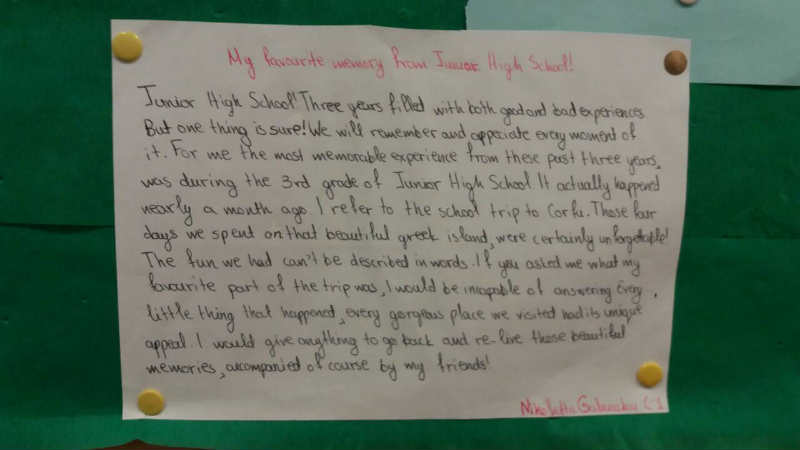 My favourite memory from Junior High School!
Junior High School! Three years filled with both good and bad experiences
But one thing is sure! We will remember and appreciate every moment of
it. For me the most memorable experience from these past three years,
was during the 3rd grade of Junior High School. It actually happened
nearly a month ago. I refer to the school trip to Corfu. Those four
days we spent on that beautiful greek island, were certainly unforgettable!
The fun we had can't be described in words. If you asked me what my
favourite part of the trip was, I would be incapable of answering. Every
little thing that happened, every gorgeous place we visited had its unique
appeal. I would give anything to go back and re-live those beautiful
memories, accompanied of course by my friends!
Nikoletta C1